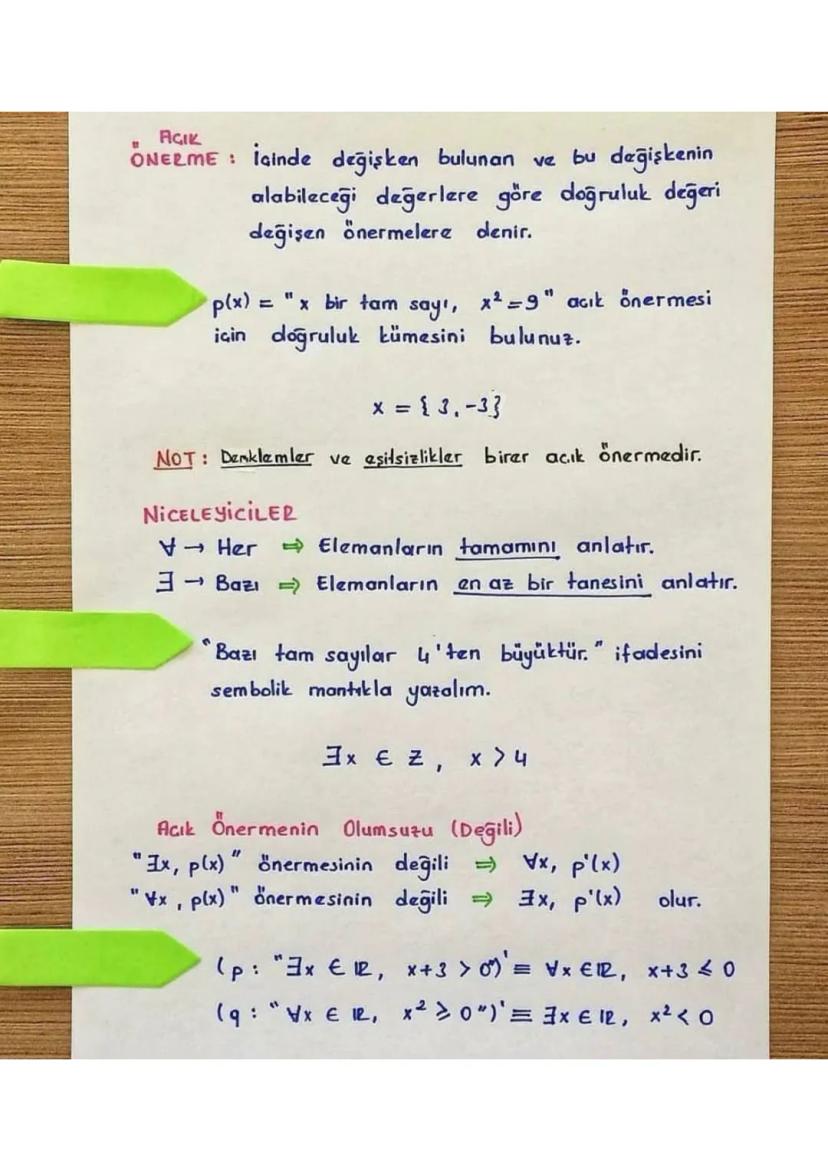 AÇIK
ÖNERME : İçinde değişken bulunan ve bu değişkenin
alabileceği değerlere göre doğruluk değeri
değişen önermelere denir.
p(x) = "x bir tam sayı, x² = 9" açık önermesi
için doğruluk kümesini bulunuz.
x = {3, -3}
NOT : Denklemler ve eşitsizlikler birer açık önermedir.
NİCELEYİCİLER
∀ → Her ⇒ Elemanların tamamını anlatır.
∃ → Bazı ⇒ Elemanların en az bir tanesini anlatır.
"Bazı tam sayılar 4'ten büyüktür." ifadesini
sembolik mantıkla yazalım.
∃x ∈ Z, x > 4
Açık Önermenin Olumsuzu (Değili)
"∃x, p(x)" önermesinin değili ⇒ ∀x, p'(x)
"∀x, p(x)" önermesinin değili ⇒ ∃x, p'(x) olur.
(p : "∃x ∈ R, x+3 > 0")' ≡ ∀x ∈ R, x+3 ≤ 0
(q : "∀x ∈ R, x² ≥ 0")' ≡ ∃x ∈ R, x² < 0